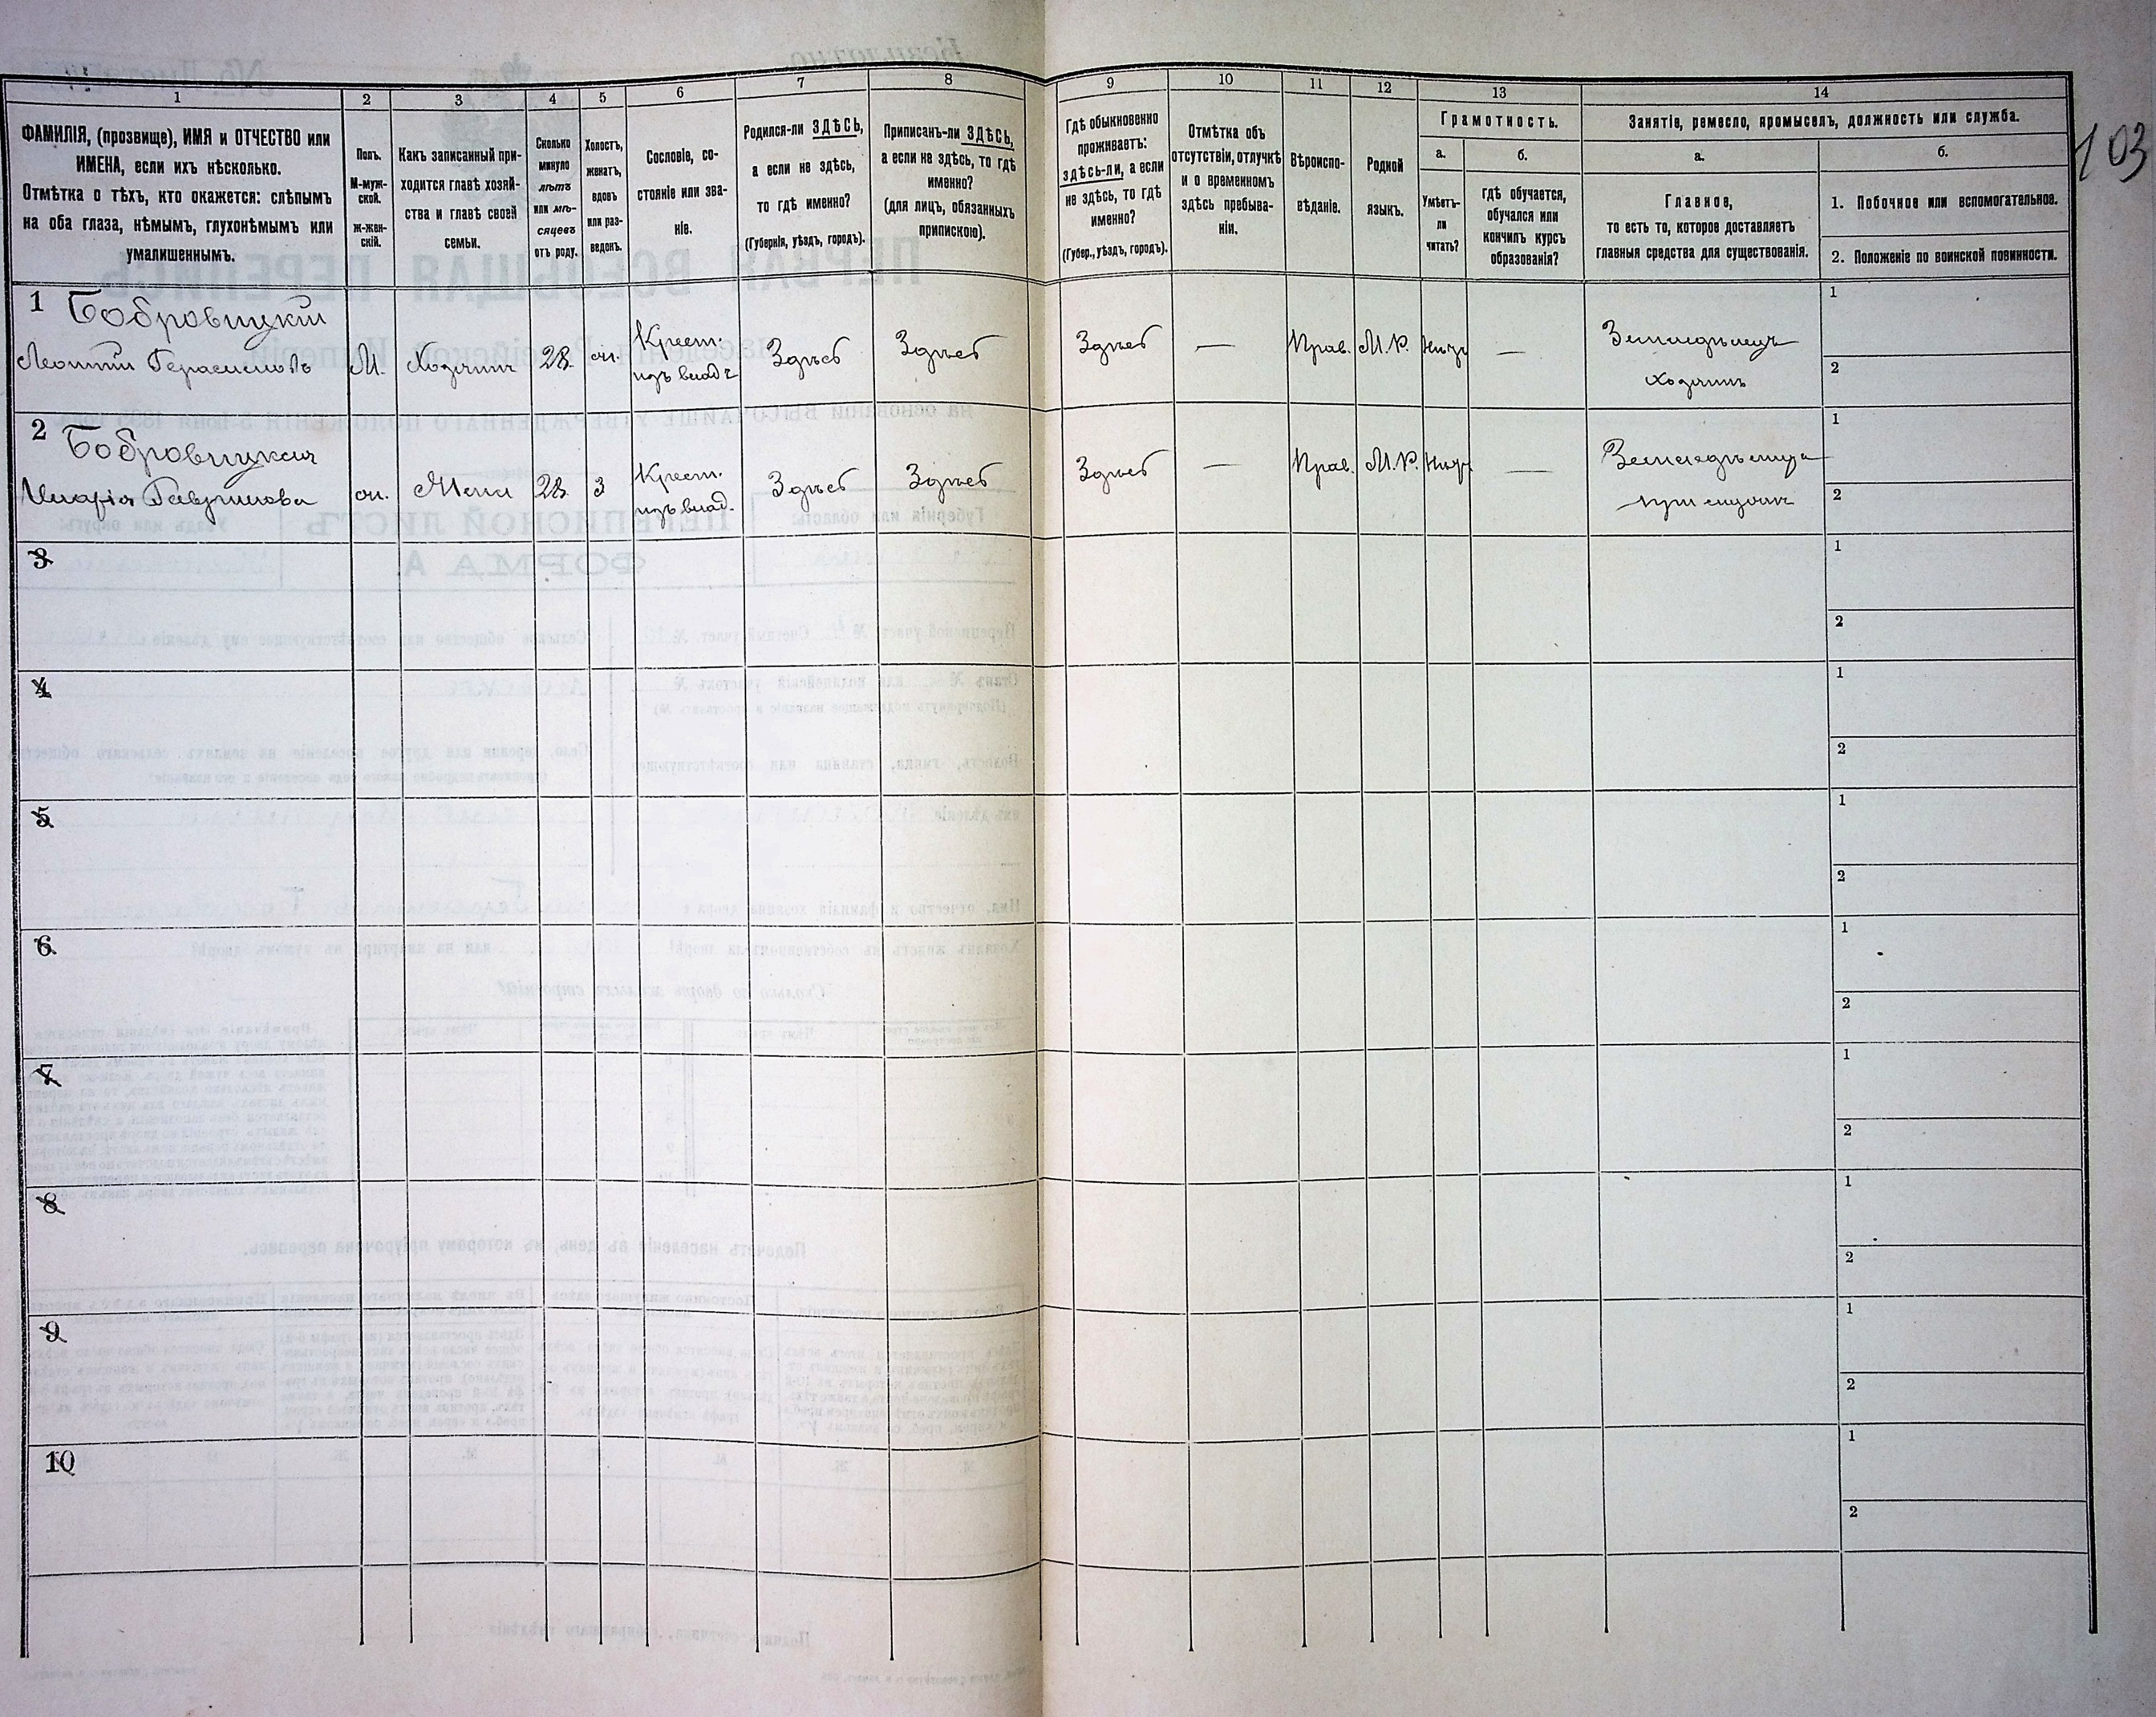 103
1 2 3 4 5 6 7 8 9 10 11 12 13 14
ФАМИЛІЯ, (прозвище), ИМЯ и ОТЧЕСТВО или
ИМЕНА, если ихъ нѣсколько.
Отмѣтка о тѣхъ, кто окажется: слѣпымъ
на оба глаза, нѣмымъ, глухонѣмымъ или
умалишеннымъ.
Полъ.
М-муж-
ской.
ж-жен-
скій.
Какъ записанный при-
ходится главѣ хозяй-
ства и главѣ своей
семьи.
Сколько
минуло
лѣтъ
или мѣ-
сяцевъ
отъ роду.
Холостъ,
женатъ,
вдовъ
или раз-
веденъ.
Сословіе, со-
стояніе или зва-
ніе.
Родился-ли ЗДѢСЬ,
а если не здѣсь,
то гдѣ именно?
(Губернія, уѣздъ, городъ).
Приписанъ-ли ЗДѢСЬ,
а если не здѣсь, то гдѣ
именно?
(для лицъ, обязанныхъ
припискою).
Гдѣ обыкновенно
проживаетъ:
здѣсь-ли, а если
не здѣсь, то гдѣ
именно?
(Губер., уѣздъ, городъ).
Отмѣтка объ
отсутствіи, отлучкѣ
и о временномъ
здѣсь пребыва-
ніи.
Вѣроиспо-
вѣданіе.
Родной
языкъ.
Грамотность.
а.
Умѣетъ-
ли
читать?
б.
гдѣ обучается,
обучался или
кончилъ курсъ
образованія?
Занятіе, ремесло, промыселъ, должность или служба.
а.
Главное,
то есть то, которое доставляетъ
главныя средства для существованія.
б.
1. Побочное или вспомогательное.
2. Положеніе по воинской повинности.
1 Бобровицкій
Леонтій Герасимовъ
М. Хозяинъ 28. ж.
Крест.
изъ влад.
Здѣсь Здѣсь Здѣсь — Прав. М.Р. —
Земледѣлецъ
хозяинъ
1
2
2 Бобровицкая
Марія Гаврилова
ж. Жена 28. З
Крест.
изъ влад.
Здѣсь Здѣсь Здѣсь — Прав. М.Р. —
Земледѣлица
при мужѣ
1
2
3
1
2
4
1
2
5
1
2
6
1
2
7
1
2
8
1
2
9
1
2
10
1
2